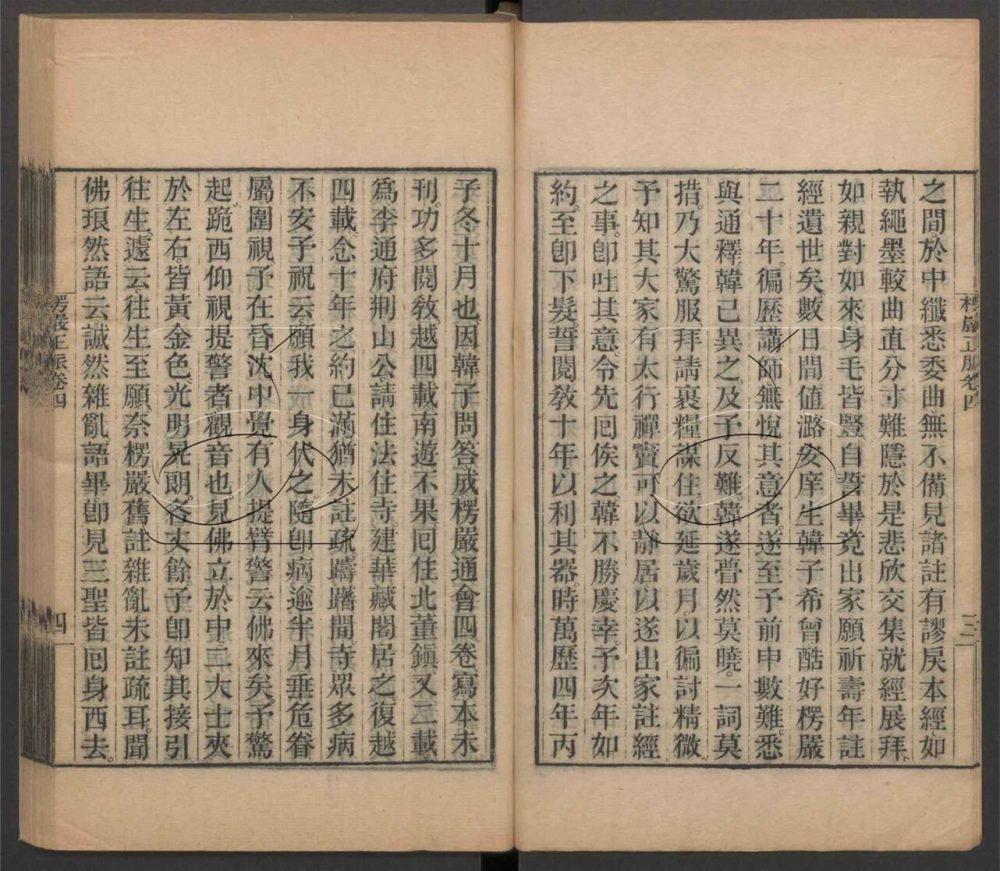 之間於中纖悉委曲無不備見諸註有謬戾本經如
執繩墨較曲直分寸難隱於是悲欣交集就經展拜
如親對如來身毛皆豎自誓畢竟出家願祈壽年註
經遺世矣數日間値潞安庠生韓子希曾酷好楞嚴
二十年徧歷講師無悅其意者遂至予前申數難悉
與通釋韓已異之及予反難韓遂瞢然莫曉一詞莫
措乃大驚服拜請裹糧謀住欲延歲月以徧討精微
予知其大家有太行禪竇可以靜居以遂出家註經
之事卽吐其意令先回俟之韓不勝慶幸予次年如
約至卽下髮誓閱敎十年以利其器時萬歷四年丙
子冬十月也因韓子問答成楞嚴通會四卷寫本未
刊功多閱敎越四載南遊不果回住北董鎭又二載
爲李通府荆山公請住法住寺建華藏閣居之復越
四載念十年之約已滿猶未註疏躊躇間寺眾多病
不安予祝云願我一身代之隨卽病逾半月垂危眷
屬圍視予在昏沈中覺有人提臂警云佛來矣予驚
起跪西仰視提警者觀音也見佛立於中二大士夾
於左右皆黃金色光明晃朗各丈餘予卽知其接引
往生遽云往生至願奈楞嚴舊註雜亂未註疏耳聞
佛琅然語云誠然雜亂語畢卽見三聖皆回身西去
楞嚴正脈卷四
三
楞嚴正脈卷四
四